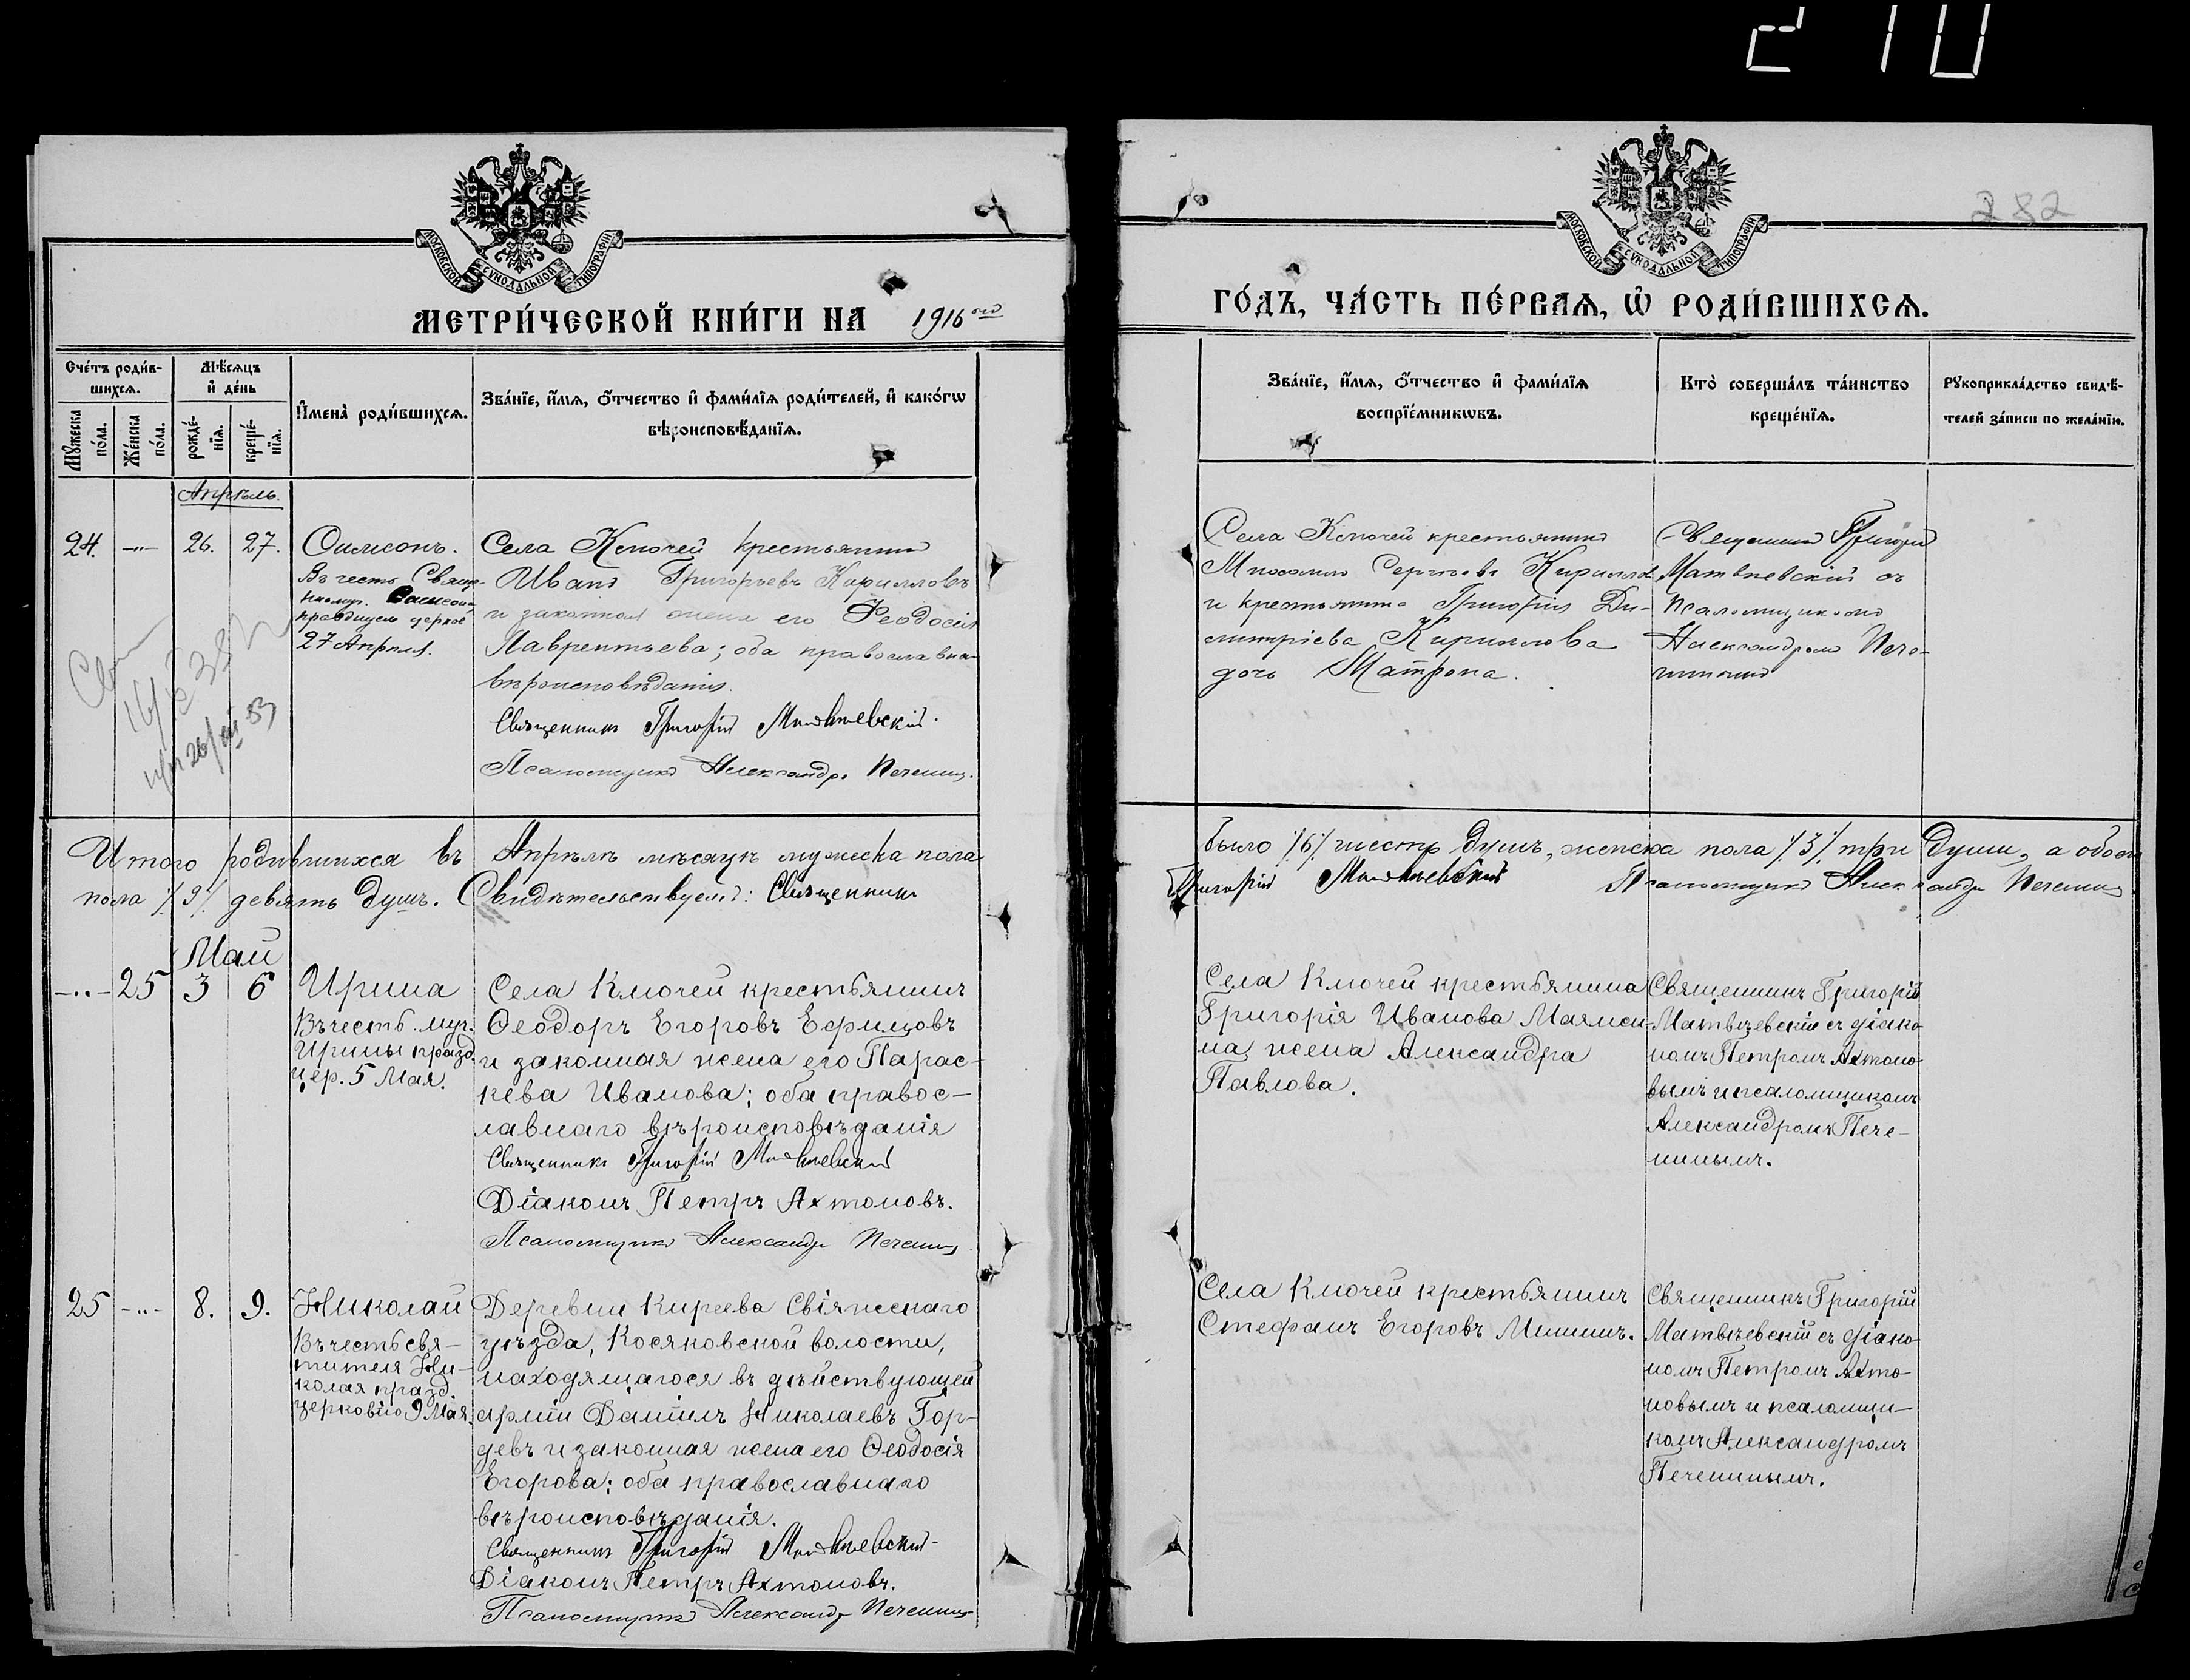 210
282
МОСКОВСКОЙ СѴНОДАЛЬНОЙ ТИПОГРАФІИ
МОСКОВСКОЙ СѴНОДАЛЬНОЙ ТИПОГРАФІИ
МЕТРИ́ЧЕСКОЙ КНИ́ГИ НА 1916 ый
ГО́ДЪ, ЧА́СТЬ ПЕ́РВАѦ, Ѡ РОДИ́ВШИХСѦ.
Сче́тъ роди́в-
шихсѧ.
Му́жеска
по́ла.
Же́нска
по́ла.
Мѣ́сѧцъ
и҆ де́нь
рожде́-
нїѧ.
креще́-
нїѧ.
И҆мена̀ роди́вшихсѧ.
Зва́нїе, и҆́мѧ, ѻ҆́тчество и҆ фами́лїѧ роди́телей, и҆ како́гѡ
вѣроисповѣ́данїѧ.
Зва́нїе, и҆́мѧ, ѻ҆́тчество и҆ фами́лїѧ
воспрїе́мникѡвъ.
Кто̀ соверша́лъ та́инство
креще́нїѧ.
Рꙋкоприкла́дство свидѣ́-
телей за́писи по жела́нїю.
Апрѣль.
24. -"- 26. 27.
Симеонъ.
Въ честь Свящ-
27 Апрѣля.
Села Ключей крестьянинъ
Иванъ Григорьевъ Кирилловъ
и законная жена его Феодосія
Лаврентьева; оба православна-
вѣроисповѣданія.
Священникъ Григорій Матвѣевскій.
Псаломщикъ Александръ Печенинъ.
Села Ключей крестьянинъ
Сергѣевъ Кириллов
и крестьянина Григорія Ди-
митріева Кириллова
дочь Матрона.
Священникъ Григорій
Матвѣевскій съ
псаломщикомъ
Александромъ Пече-
нинымъ
Итого родившихся въ Апрѣлѣ мѣсяцѣ мужеска пола
было /6/ шесть душъ, женска пола /3/ три души, а обоего
пола /9/ девять душъ. Свидѣтельствуемъ: Священникъ
Григорій Матвѣевскій Псаломщикъ Александръ Печенинъ
Май
-"- 25 3 6
Ирина
Въ честь муч.
Ирины празд.
цер. 5 Мая.
Села Ключей крестьянинъ
Ѳеодоръ Егоровъ Ефимовъ
и законная жена его Парас-
кева Иванова; оба правос-
лавнаго вѣроисповѣданія
Священникъ Григорій Матвѣевскій
Діаконъ Петръ Ахтоновъ.
Псаломщикъ Александръ Печенинъ
Села Ключей крестьянина
Григорія Иванова Маямси-
на жена Александра
Павлова.
Священникъ Григорій
Матвѣевскій съ діако-
номъ Петромъ Ахтоно-
вымъ и псаломщикомъ
Александромъ Пече-
нинымъ.
25 -"- 8. 9.
Николай
Въ честь свя-
тителя Ни-
колая празд.
церковію 9 Мая.
Деревни Киреева Свіяжскаго
уѣзда, Косяковской волости,
находящагося въ дѣйствующей
арміи Даніилъ Николаевъ Гор-
девъ и законная жена его Ѳеодосія
Егорова; оба православнаго
вѣроисповѣданія.
Священникъ Григорій Матвѣевскій
Діаконъ Петръ Ахтоновъ.
Псаломщикъ Александръ Печенинъ
Села Ключей крестьянинъ
Стефанъ Егоровъ Мишинъ.
Священникъ Григорій
Матвѣевскій съ діако-
номъ Петромъ Ахто-
новымъ и псаломщи-
комъ Александромъ
Печенинымъ.